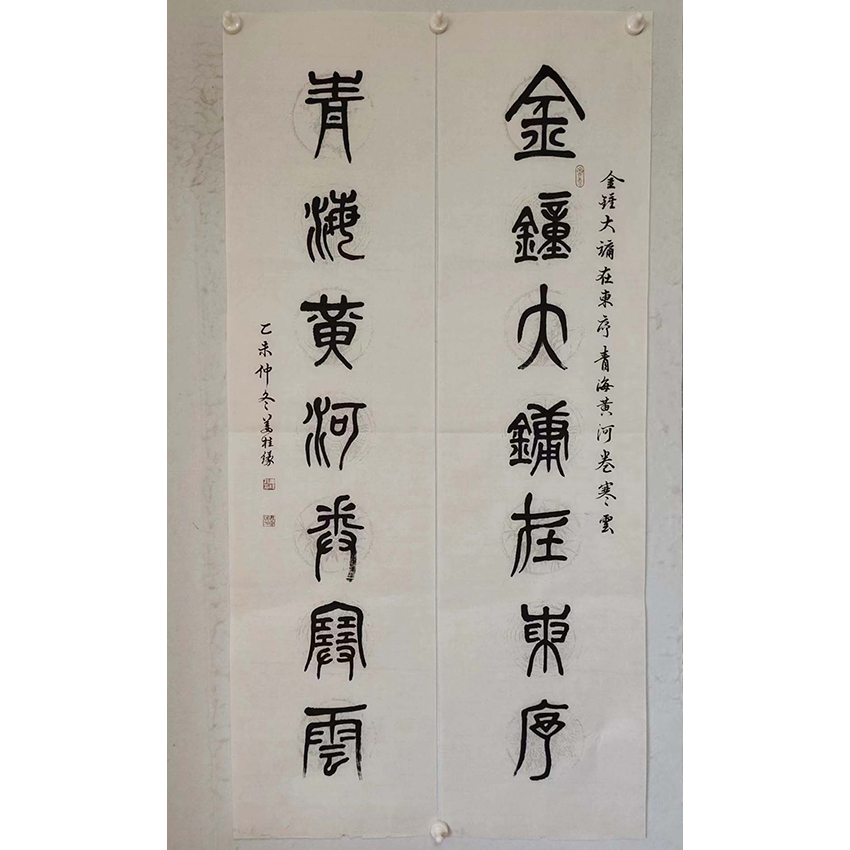 金鍾大鏞在東序青海黃河卷寒雲
金鐘大鏞在東序
青海黃河卷寒雲
乙未仲冬姜桂緣